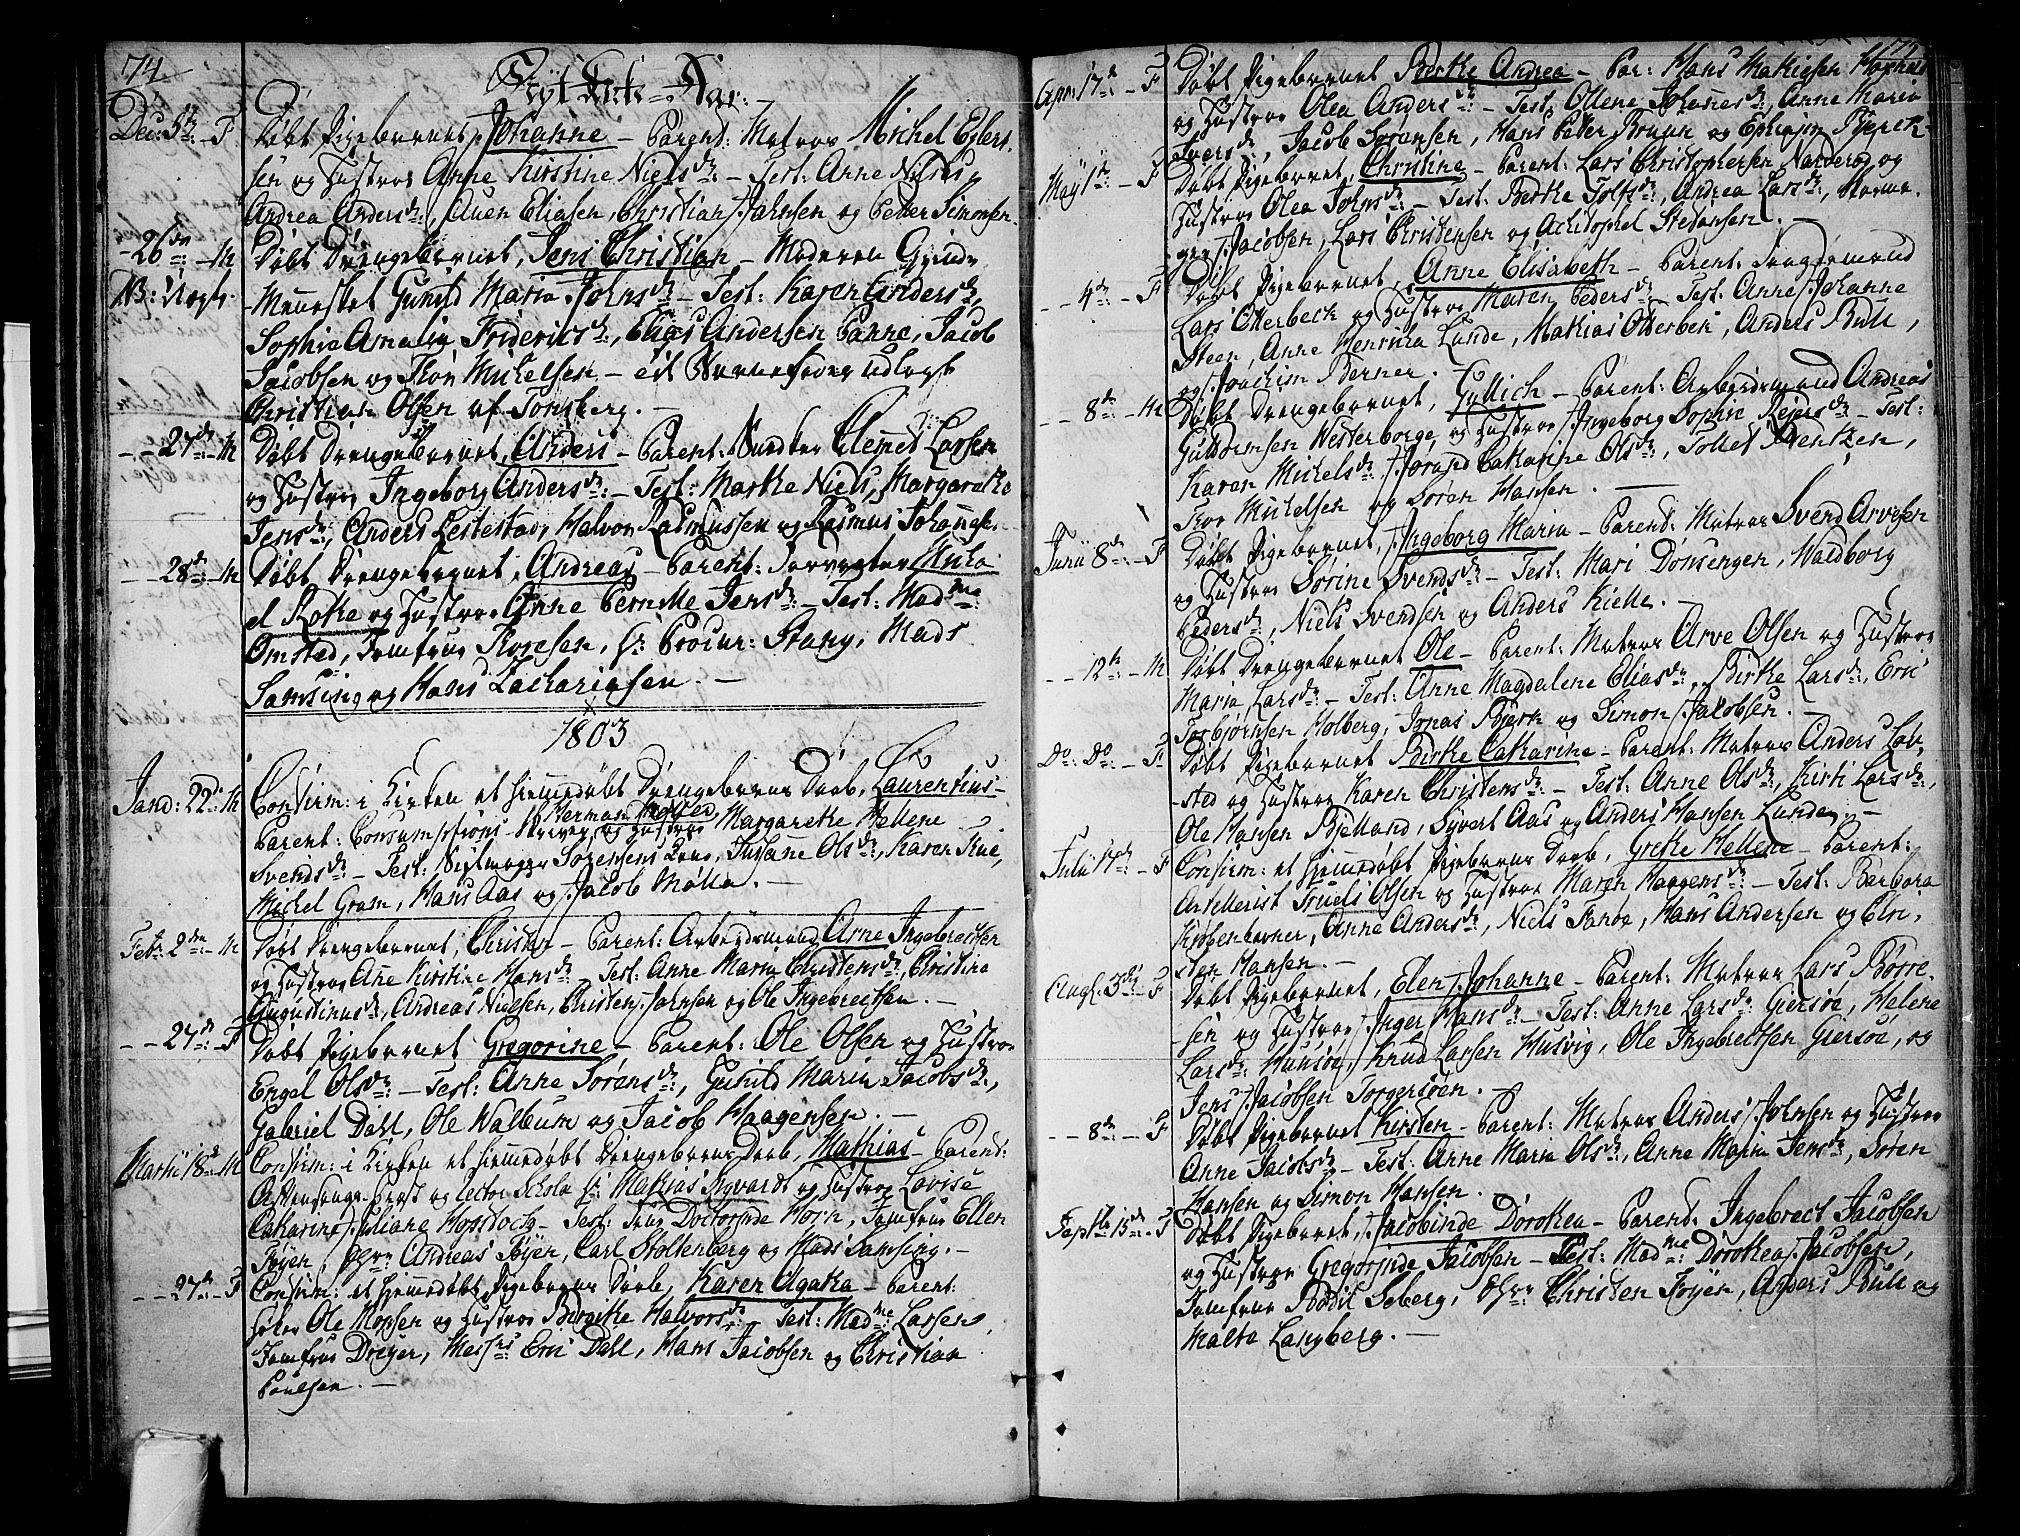 74
Dec: 5te – F Døbt Pigebarnet, Johanne – Parent: Matros Michel Eylers,
sen og Hustroe Anne Kirstine Nielsdr: – Test: Anne
Andrea Andersdr:, Auen Eliasen, Christian Johnsen og Peder Simonsen
– 26de – M Døbt Drengebarnet, Jens Christian – Moderen
NB: Uægte Mennesket Gunild Maria Johnsdr – Test: Karen Andersdr,
Sophie Amalia Fridericsdr:, Elias Andersen Panne, Jacob
Jacobsen og Thor Michelsen – til Barnefader udlagt
Christian Olsen af Tønsberg. –
– – 27de – M Døbt Drengebarnet, Anders – Parent: Clemet Larsen
og Hustroe Ingeborg Andersdr: – Test: Marthe Niels, Margarethe
Jensdr:, Anders Lestestav, Halvor Rasmussen og Rasmus Johannes.
– – 28de – M Døbt Drengebarnet, Andreas – Parent: Forvalter Micha
el Rothe og Hustroe Anne Pernille Jensdr: – Test: Madme
Omsted, Jomfrue Thoresen, Hr: Procur: Stang, Mads
Samsing og Hans Zachariasen. –
1803
Janu: 22de M Confirm: i Kirken et hiemmedøbt Drengebarns Daab, Laurentius –
Parent: Consumptions Skriver Herman og Hustroe Margarethe Hellene
Svendsdr: – Test: Seilmager Sørensens Kone, Susane Olsdr:, Karen Due,
Michel Gram, Hans Aas og Jacob Mølle. –
Febr: 2den – M Døbt Drengebarnet, Christen – Parent: Arbeidsmand Arne Ingebrectsen
og Hustroe Ane Kirstine Hansdr: – Test: Anne Maria Christensdr:, Christina
Augustinusdr, Andreas Nielsen, Christen Johnsen og Ole Ingebrectsen. –
– – 27de: F Døbt Pigebarnet Gregorine – Parent: Ole Olsen og Hustroe
Engel Olsdr: – Test: Anne Sørensdr:, Gunild Maria Jacobsdr:,
Gabriel Dahl, Ole Walbum og Jacob Haagensen. –
Martii 18de M Confirm: i Kirken et hiemmedøbt Drengebarns Daab, Mathias – Parent:
Aftensangs Præst og Lector Schola Hr: Mathias Sigvardt og Hustroe Lovise
Catharina Juliane – Test: Doctorinde Horn, Jomfrue Ellen
Føyen, Hrr Andreas Føyen, Carl Stoltenberg og Mads Samsing. –
– – 27de – F Confirm: et hiemmedøbt Pigebarns Daab, Karen Agatha – Parent:
Høker Ole Monsen og Hustroe Birgithe Halvorsdr – Test: Madme Larsen,
Jomfrue Dreyer, Messrs Eric Dahl, Hans Jacobsen og Christian
Poulsen. –
Apr: 17de – F Døbt Pigebarnet Berthe Andrea – Par: Hans Mathiesen
og Hustroe Olea Andersdr: – Test: Ollene Johannesdr:, Anne Maria
Iversdr:, Jacob Sørensen, Hans Peter Bruun og Ephraim Bjerck.
May 1te – F Døbt Pigebarnet, Christine – Parent: Lars Christophersen Narverød og
Hustroe Olea Johnsdr: – Test: Berthe Tolfsdr:, Andrea Larsdr:,
Jacobsen, Lars Christensen og Achitophel Stefansen. –
– – 4de – F Døbt Pigebarnet, Anne Elisabeth – Parent:
Lars Otterbeck og Hustroe Maren Pedersdr: – Test: Anne Johanne
Steen, Anne Henricha Lunde, Mathias Otterbeck, Anders Bull,
og Joachim Berner. –
– – 8de: – M Døbt Drengebarnet, Gullich – Parent: Arbeidsmand Andreas
Guldormsen Westerborge, og Hustroe Ingeborg Sophie Reiersdr: – Test:
Karen Michelsdr: Jørand Catharine Olsdr:, Tollef Bentzen,
Thor Michelsen og Søren Hansen. –
Junii 8de – F Døbt Pigebarnet, Ingeborg Maria – Parent: Matros Svend Arvesen
og Hustroe Sørine Svendsdr: – Test: Mari Dønsengen, Waldborg
Pedersdr:, Niels Svendsen og Anders Kielle. –
– – 12te – M Døbt Drengebarnet Ole – Parent: Matros Arve Olsen og Hustroe
Maria Larsdr: – Test: Anne Magdalene Eliasdr:, Birthe Larsdr:, Eric
Torbjørnsen Holberg, Jonas Bjerk og Simon Jacobsen. –
Do: Do: – F Døbt Pigebarnet, Birthe Catharine – Parent: Matros Anders Lov-
sted og Hustroe Karen Christensdr: – Test: Anne Olsdr:, Kirsti Larsdr:,
Ole Hansen Bjelland, Syvert Aas og Anders Hansen Lunden. –
Julii 14de – F Confirm: et hjemmedøbt Pigebarns Daab, Grethe Hellene – Parent:
Artillerist Truels Olsen og Hustroe Maren Haagensdr: – Test: Barbora
Kiøbenhavner, Anne Andersdr:, Niels Fanøe, Hans Andersen og Chri,
sten Hansen. –
Aug: 3die – F Døbt Pigebarnet, Elen Johanne – Parent: Matros Lars Børre-
sen og Hustroe Inger Hansdr: – Test: Anne Larsdr: Giersøe, Helene
Larsdr: Hunsøe, Knud Larsen Husvig, Ole Ingebrectsen Giersøe, og
Jens Jacobsen Torgersøen. –
– – 8de: – F Døbt Pigebarnet Kirsten – Parent: Matros Anders Johnsen og Hustroe
Anne Jacobsdr: – Test: Anne Maria Olsdr:, Anne Maria Jensdr:, Søren
Hansen og Simon Hansen. –
Septb: 15de – F Døbt Pigebarnet, Jacobinde Dorothea – Parent: Ingebrect Jacobsen
og Hustroe Gregorinde Jacobsen – Test: Madme: Dorothea Jacobsen,
Jomfrue Bodil Seberg, Hrr Christen Føyen, Anders Bull og
Malta Langberg. –